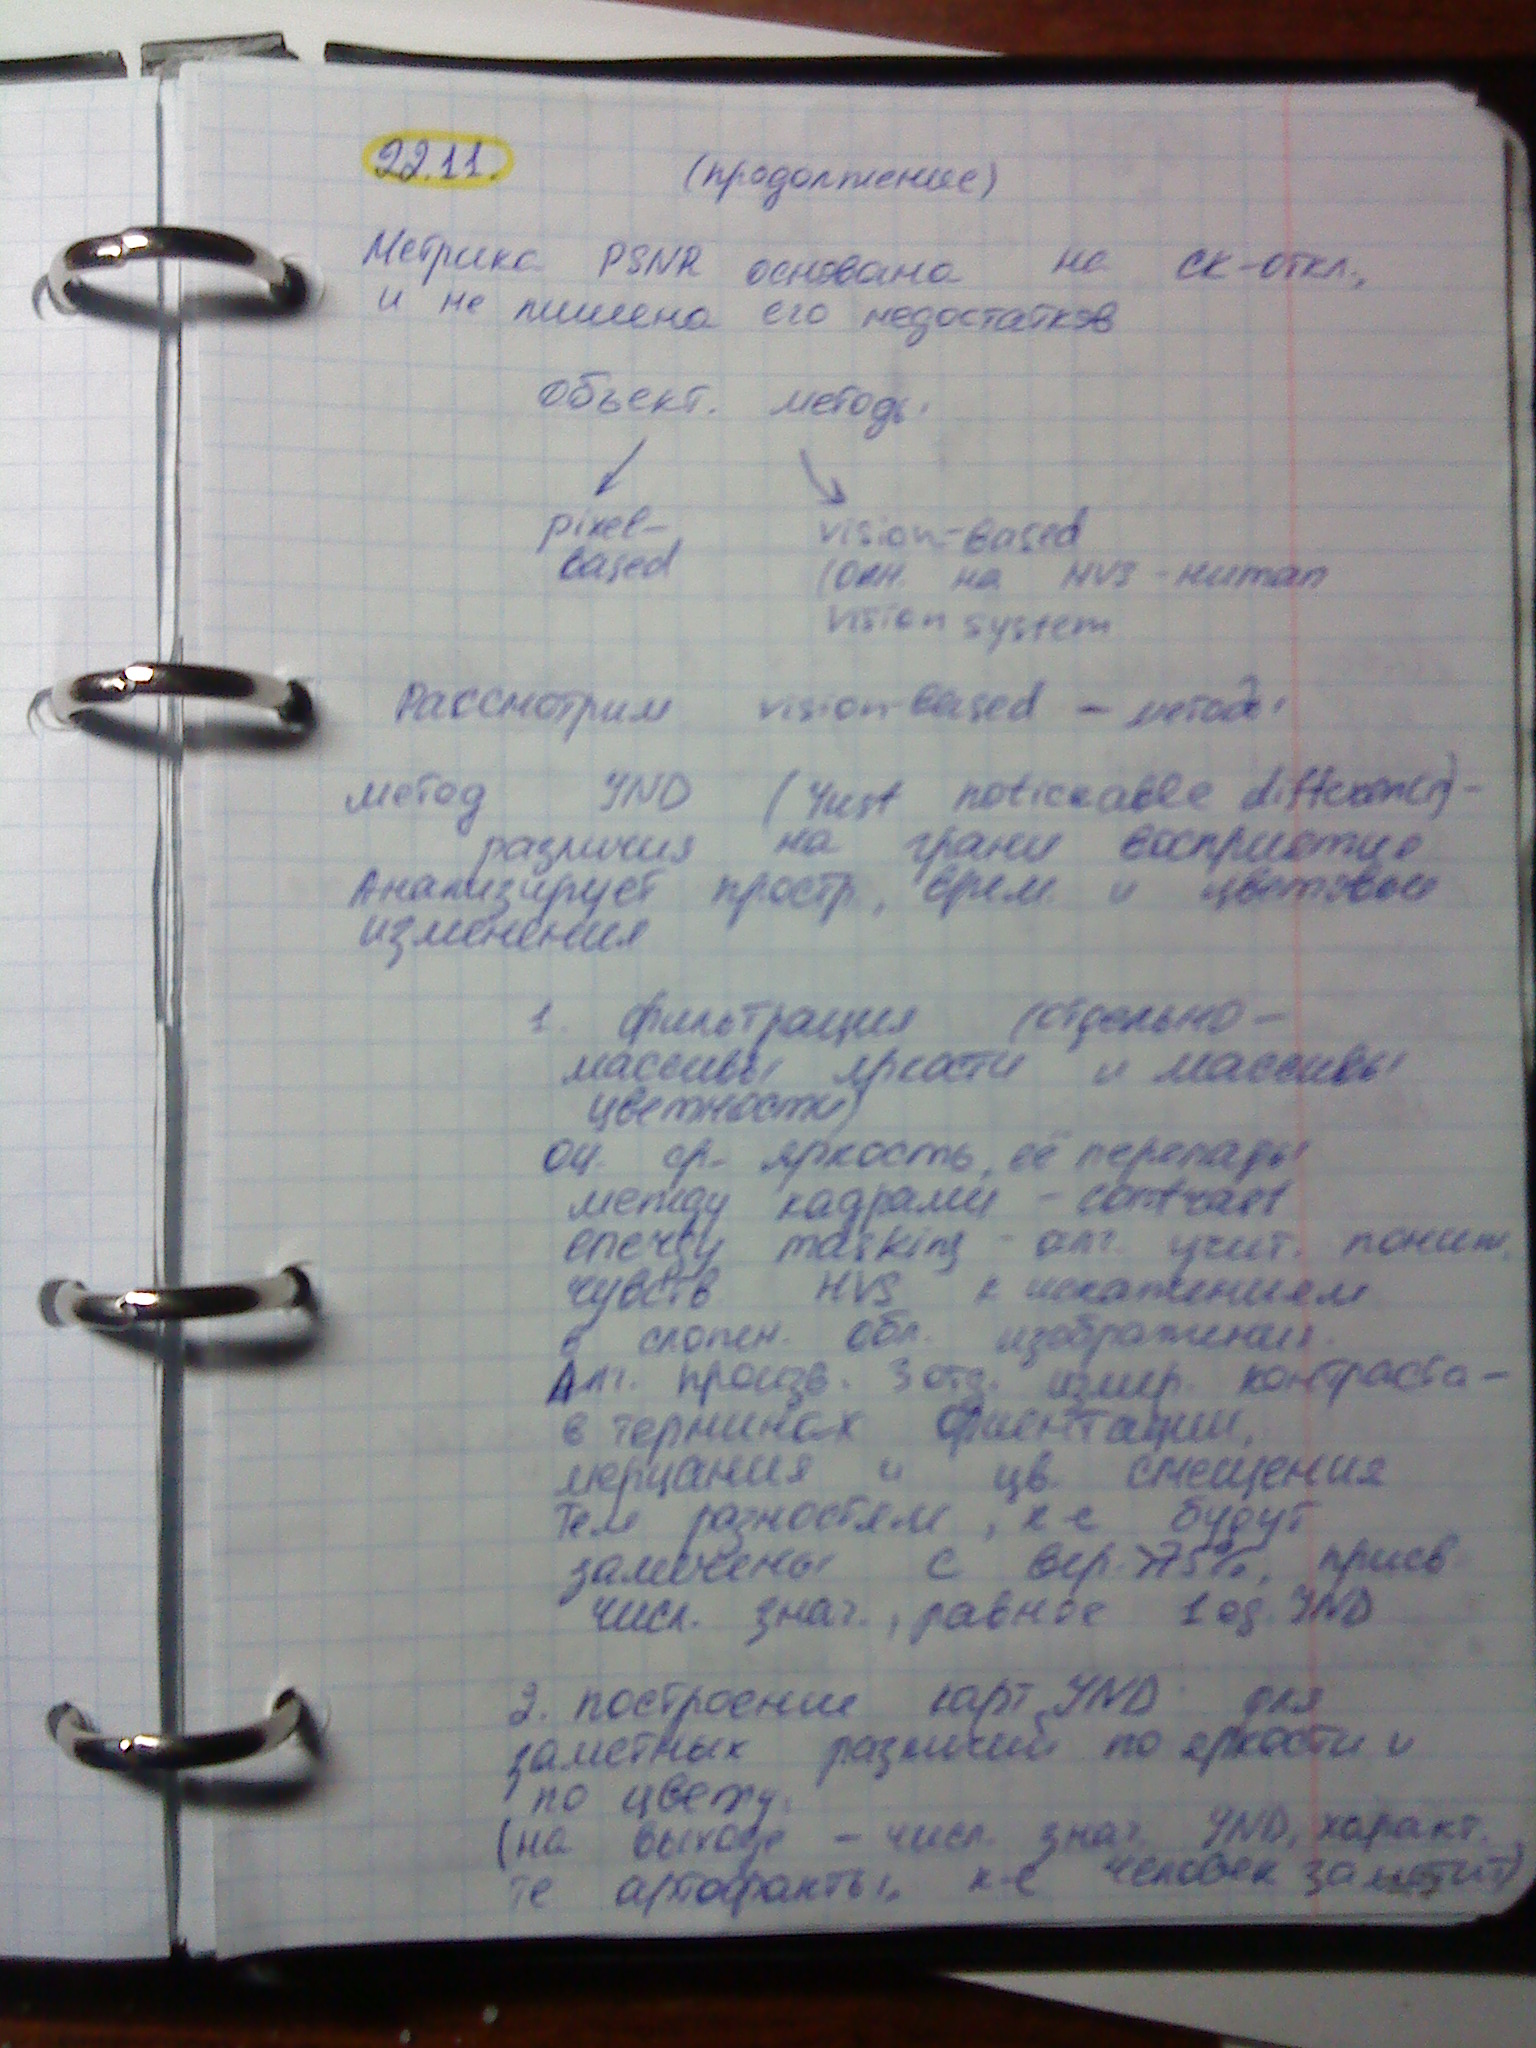 22.11. (продолжение)
Метрика PSNR основана на ск-откл.,
и не лишена его недостатков
объект. методы
pixel-
based
vision-based
(осн. на HVS - human
vision system
Рассмотрим vision-based - методы
метод JND (Just noticeable difference) -
различия на грани восприятия
Анализирует простр., врем. и цветовые
изменения
1. фильтрация (отдельно -
массивы яркости и массивы
цветности)
оц. ср. яркость, её перепады
между кадрами - contrast
masking - алг. учит. пониж.
чувств HVS к искажениям
в сложн. обл. изображения.
Алг. произв. 3 отд. измер. контраста -
в терминах ориентации,
мерцания и цв. смещения
Тем разностям, к-е будут
замечены с вер. >75%, присв
числ. знач., равное 1 ед. JND
2. построение карт JND для
заметных различий по яркости и
по цвету.
(на выходе - числ. знач. JND, характ.
те артефакты, к-е человек заметит)